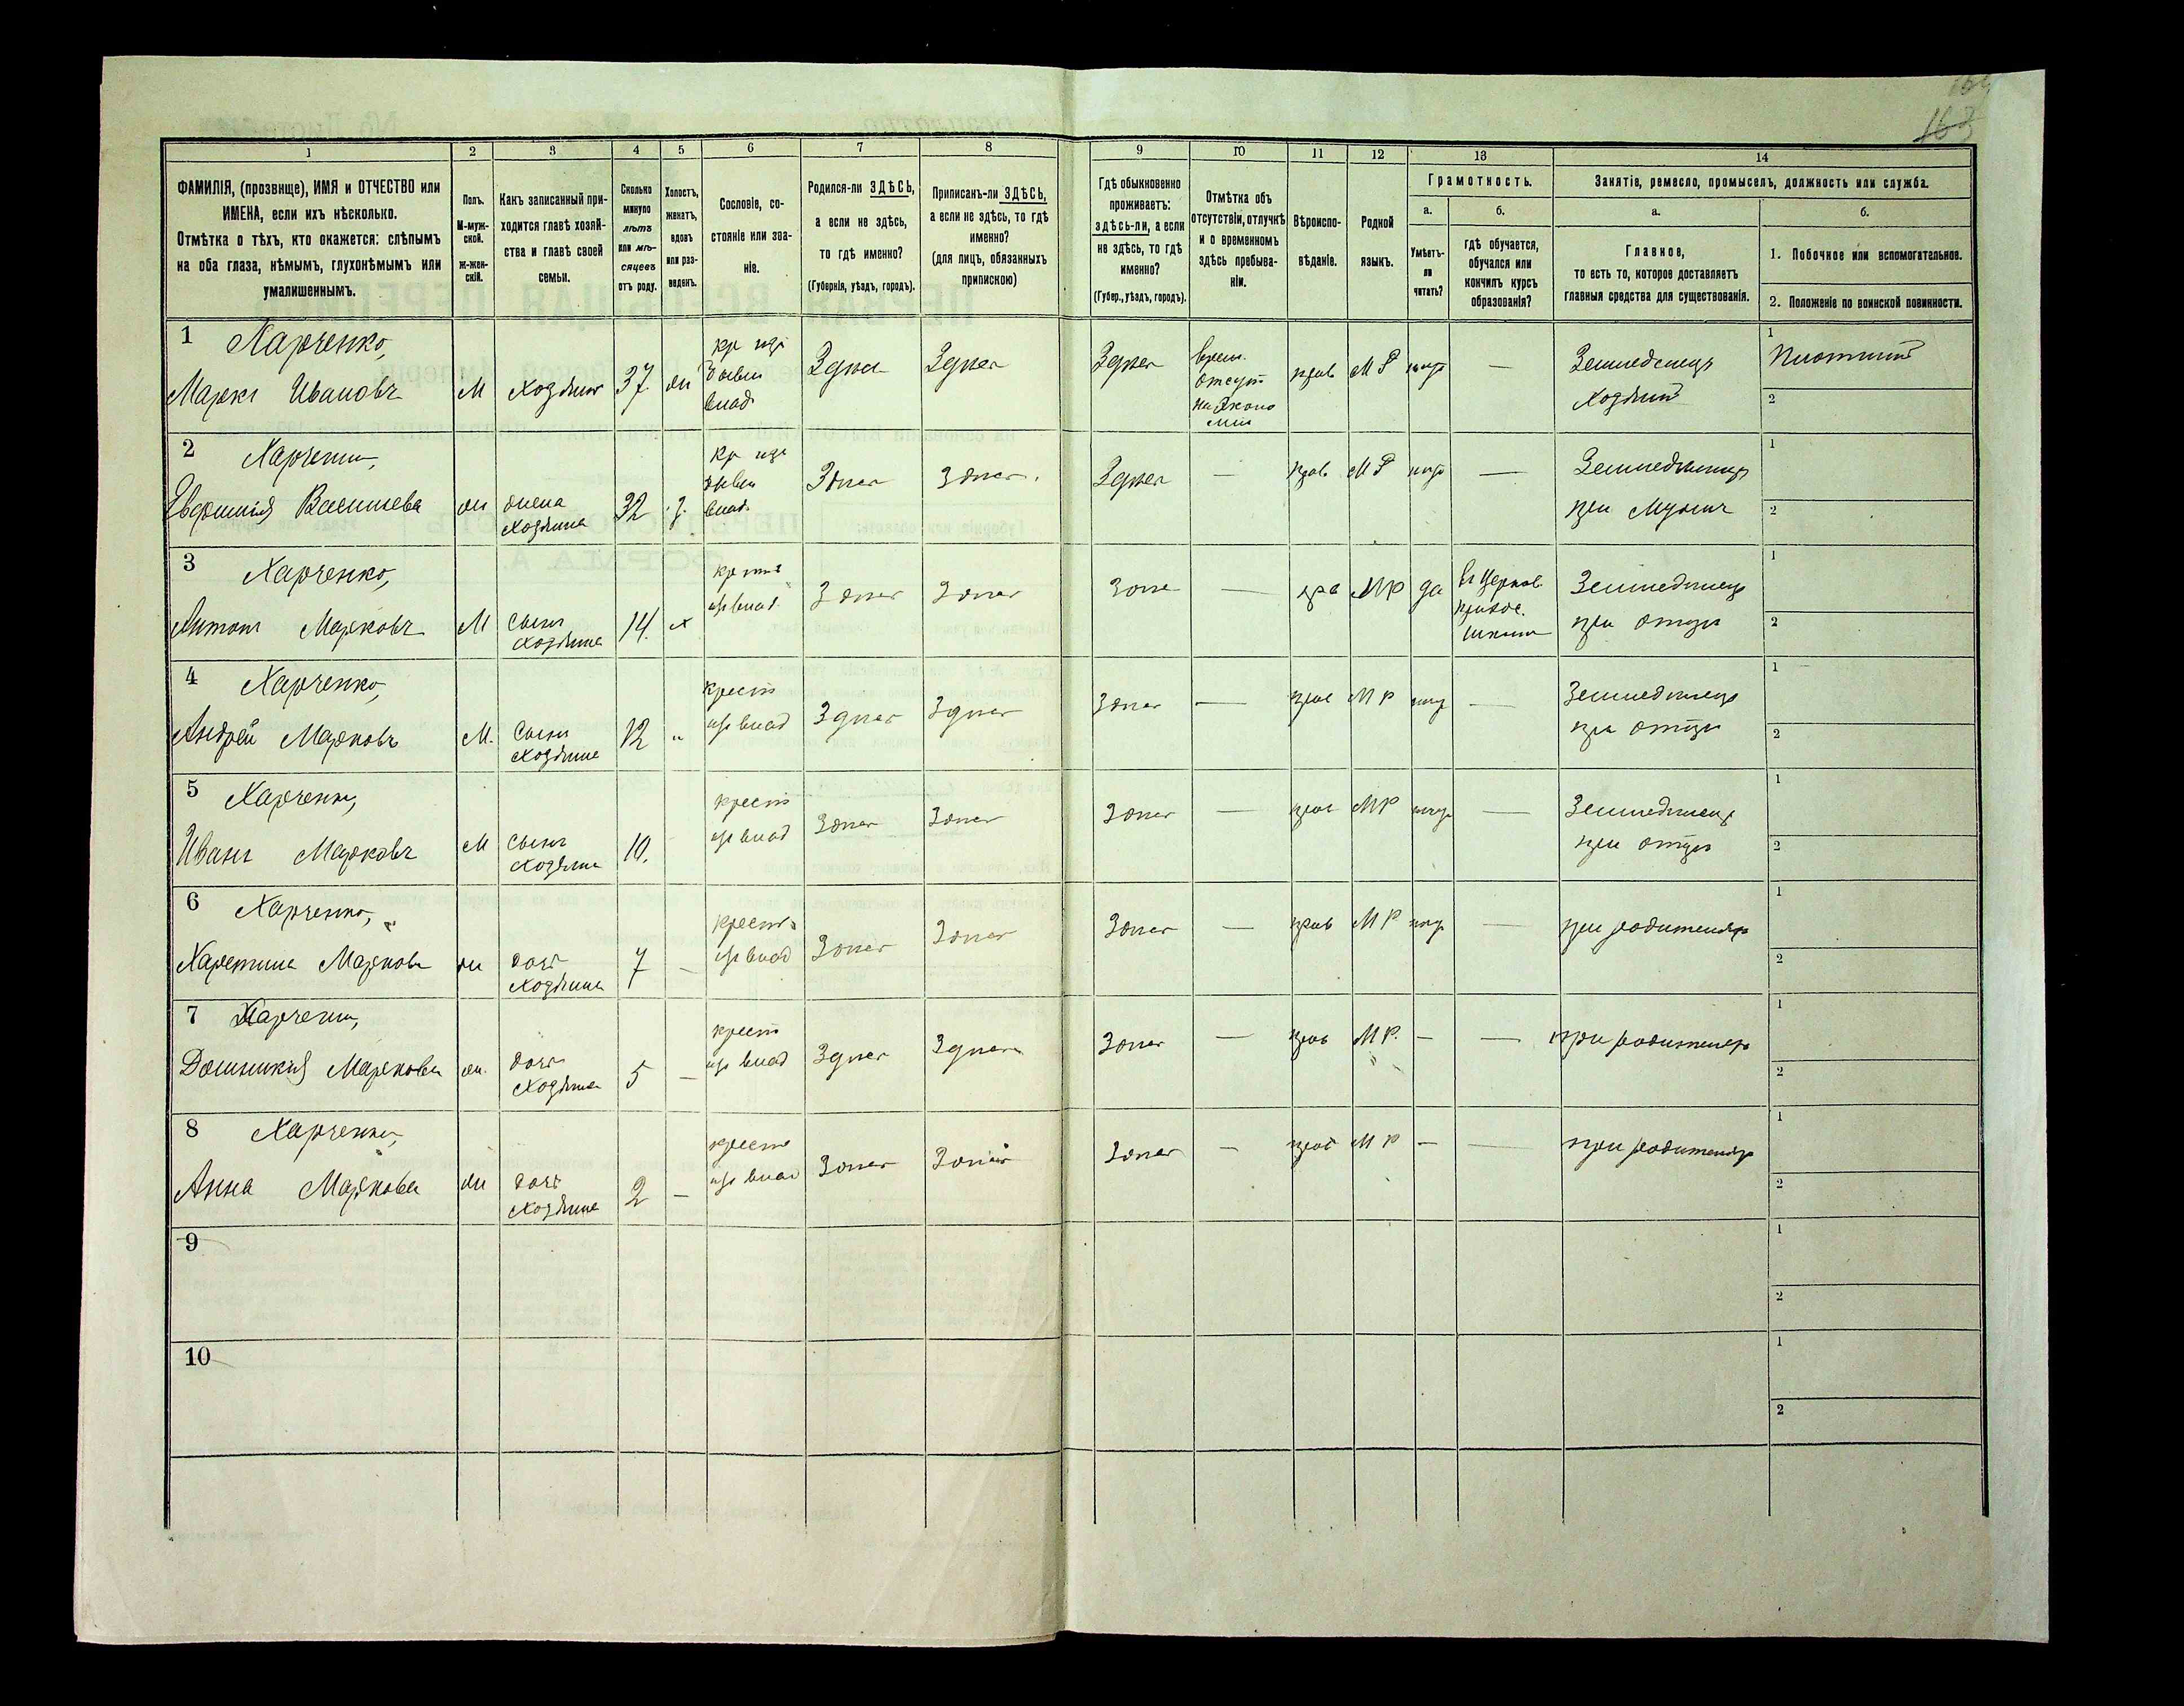 164
163
1 2 3 4 5 6 7 8 9 10 11 12 13 14
ФАМИЛІЯ, (прозвище), ИМЯ и ОТЧЕСТВО или
ИМЕНА, если ихъ нѣсколько.
Отмѣтка о тѣхъ, кто окажется: слѣпымъ
на оба глаза, нѣмымъ, глухонѣмымъ или
умалишеннымъ.
Полъ.
М-муж-
ской.
ж-жен-
скій.
Какъ записанный при-
ходится главѣ хозяй-
ства и главѣ своей
семьи.
Сколько
минуло
лѣтъ
или мѣ-
сяцевъ
отъ роду.
Холостъ,
женатъ,
вдовъ
или раз-
веденъ.
Сословіе, со-
стояніе или зва-
ніе.
Родился-ли ЗДѢСЬ,
а если не здѣсь,
то гдѣ именно?
(Губернія, уѣздъ, городъ).
Приписанъ-ли ЗДѢСЬ,
а если не здѣсь, то гдѣ
именно?
(для лицъ, обязанныхъ
припискою)
Гдѣ обыкновенно
проживаетъ:
здѣсь-ли, а если
не здѣсь, то гдѣ
именно?
(Губер., уѣздъ, городъ).
Отмѣтка объ
отсутствіи, отлучкѣ
и о временномъ
здѣсь пребыва-
ніи.
Вѣроиспо-
вѣданіе.
Родной
языкъ.
Грамотность.
а.
Умѣетъ-
ли
читать?
б.
гдѣ обучается,
обучался или
кончилъ курсъ
образованія?
Занятіе, ремесло, промыселъ, должность или служба.
а.
Главное,
то есть то, которое доставляетъ
главныя средства для существованія.
б.
1. Побочное или вспомогательное.
2. Положеніе по воинской повинности.
1 Харченко,
Маркъ Ивановъ М хозяинъ 37 жи
кр изъ
бывш
влад.
Здѣсь Здѣсь Здѣсь
врем.
отсут
на эконо
міи
прав М Р нѣтъ —
Земледѣлецъ
Хозяинъ
1 Плотникъ
2
2 Харченко,
Васильева жи
жена
хозяина
32 з.
кр изъ
бывш
влад.
Здѣсь Здѣсь. Здѣсь — прав М Р нѣтъ —
Земледѣлецъ
при Мужѣ
1
2
3 Харченко,
Антонъ Марковъ М
сынъ
хозяина
14. х
изъ влад.
Здѣсь Здѣсь Здѣсь — пра МР да
въ Церков.
приход.
школѣ
Земледѣлецъ
при отцѣ
1
2
4 Харченко,
Андрей Марковъ М.
сынъ
хозяина
12 "
крест
изъ влад
Здѣсь Здѣсь Здѣсь — прав М Р нѣтъ —
Земледѣлецъ
при отцѣ
1
2
5 Харченко,
Иванъ Марковъ М
сынъ
хозяина
10.
крест
изъ влад
Здѣсь Здѣсь Здѣсь — прав МР нѣтъ —
Земледѣлецъ
при отцѣ
1
2
6 Харченко,
Харетина Маркова жи
дочь
хозяина
7 —
крест
изъ влад
Здѣсь Здѣсь Здѣсь — прав М Р нѣтъ —
при родителяхъ
1
2
7 Харченко,
Домникія Маркова жи.
дочь
хозяина
5 —
крест
изъ влад
Здѣсь Здѣсь Здѣсь — прав М Р. — —
при родителяхъ
1
2
8 Харченко,
Анна Маркова жи
дочь
хозяина
2 —
крест
изъ влад
Здѣсь Здѣсь Здѣсь — прав М Р — —
при родителяхъ
1
2
9
1
2
10
1
2